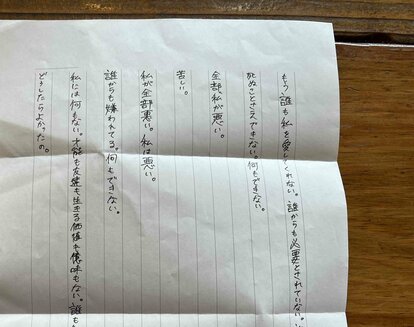 もう誰も私を愛してくれない。誰からも必要とされていない。
死ぬことさえできない。何もできない。
全部私が悪い。
苦しい。
私が全部悪い。私は悪い。
誰からも嫌われてる。何もできない。
私には何もない。才能も友達も生きる価値も意味もない。誰も
どうしたらよかったの。